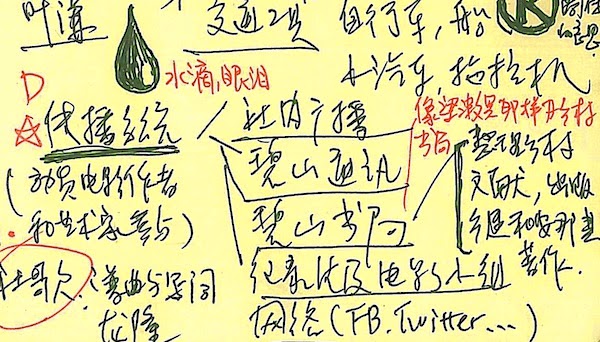 交通工具
自行车,船
汽车,拖拉机
水滴,眼泪
D
传播系统
(动员电影作者
和艺术家参与)
社内广播
碧山通讯
碧山书局
纪录片及电影小组
网络(FB.Twitter...)
像梁漱溟那样办乡村
书局
整理乡村
文献,出版
和安那其
著作.
社歌:谱曲与写词